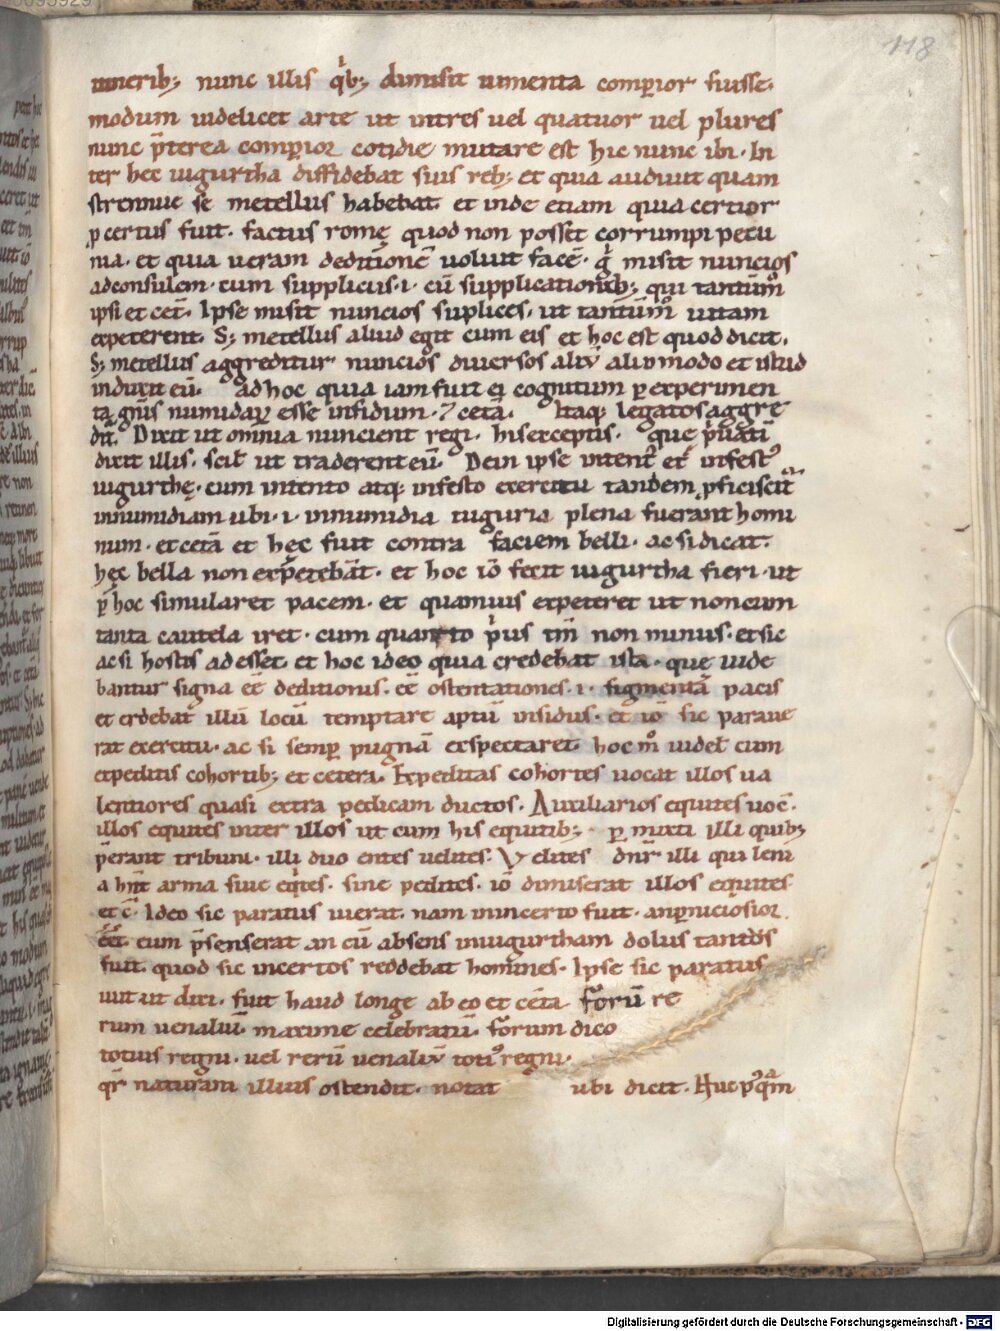 118
munerib; nunc illis q̇b; dimisit iumenta comp̱ior fuisse.
modum uidelicet arte ut intres uel quatuor uel plures
nunc p̄terea comp̱ior cotidie mutare est hic nunc ibi. In
ter hec iugurtha diffidebat suis reb; et quia audiuit quam
strennue se metellus habebat et inde etiam quia certior
p certus fuit. factus romę quod non posset corrumpi pecu
nia. et quia ueram deditionē uoluit facē. q̇ misit nuncios
adconsulem. cum suppliciis .i. cū supplicationib; qui tantūm̊
ipsi et cet̄. Ipse misit nuncios suplices. ut tantūm̊ uitam
expeterent. S; metellus aliud egit cum eis et hoc est quod dicit.
S; metellus aggreditur nuncios diuersos aliū alio modo et istud
induxit eū. ad hoc quia iam fuit ei cognitum p̱ experimen
ta gn̄us numidaꝝ esse infidum. ⁊ cetā. Itaq; legatos aggre
dit̄. Dixit ut omnia nuncient regi. his exceptis. que ṗuati
dixit illis. scił ut traderent eū. Dein ipse intent᷒ et infest᷒
iugurthę. cum intento atq; infesto exercitu tandem p̱ficiscit᷑
innumidiam ubi .i. innumidia tuguria plena fuerant homi
num. et cetā et hęc fuit contra faciem belli. ac si dicat.
hęc bella non exp̄etebāt. et hoc iō fecit iugurtha fieri. ut
p̱ hoc simularet pacem. et quamuis expeteret ut non cum
tanta cautela iret. cum quanto ṗus tm̄ non minus. et sic
ac si hostis adesset. et hoc ideo quia credebat ista. quę uide
bantur signa eē deditionis. eē ostentationes .i. figmentā pacis
et crdebat illū locū temptare aptū insidiis. et iō sic paraue
rat exercitū. ac si semp̱ pugnā exspectaret. hoc m̊ uidet̄ cum
expeditis cohortib; et cetera. Expeditas cohortes uocat illos ua
lentiores quasi extra pedicam ductos. Auxiliarios equites uoc̄.
illos equites inter illos ut cum his equitib; p̱ mixti illi quib;
p̄erant tribuni. illi duo entes uelites. Velites dn̄r illi qui leui
a hn̄t arma siue eq̇tes. siue pedites. iō dimiserat illos equites
et c̄. Ideo sic paratus uierat. nam inincerto fuit. anp̱niciosior
eēt cum p̄senserat an cū absens iniugurtham dolus tantus
fuit. quod sic incertos reddebat homines. Ipse sic paratus
iuit ut dixi. fuit haud longe ab eo et cetā forū re
rum uenaliū. maxime celebratū. forum dico
totius regni. uel rerū uenaliū toti᷒ regni.
qr̄ naturam illius ostendit. notat ubi dicit. Huc p᷒q̄m
Digitalisierung gefördert durch die Deutsche Forschungsgemeinschaft - DFG